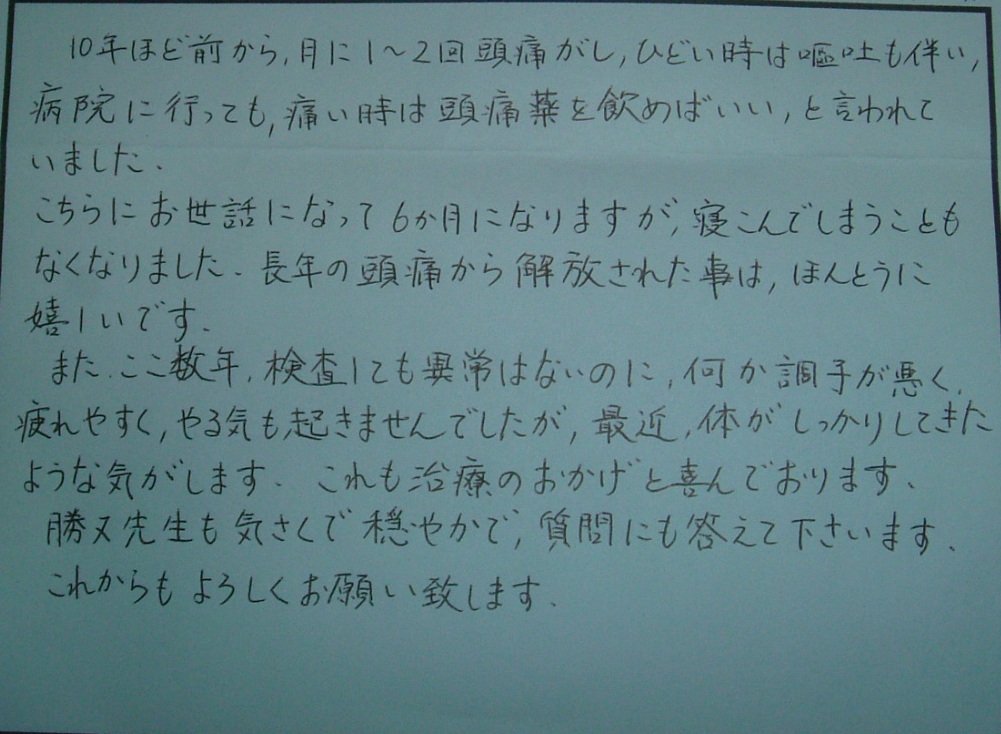 10年ほど前から,月に1〜2回頭痛がし,ひどい時は嘔吐も伴い,
病院に行っても,痛い時は頭痛薬を飲めばいい,と言われて
いました.
こちらにお世話になって6か月になりますが,寝こんでしまうことも
なくなりました.長年の頭痛から解放された事は,ほんとうに
嬉しいです.
また.ここ数年,検査しても異常はないのに,何か調子が悪く,
疲れやすく,やる気も起きませんでしたが,最近,体がしっかりしてきた
ような気がします.これも治療のおかげと喜んでおります.
勝又先生も気さくで穏やかで,質問にも答えて下さいます.
これからもよろしくお願い致します.